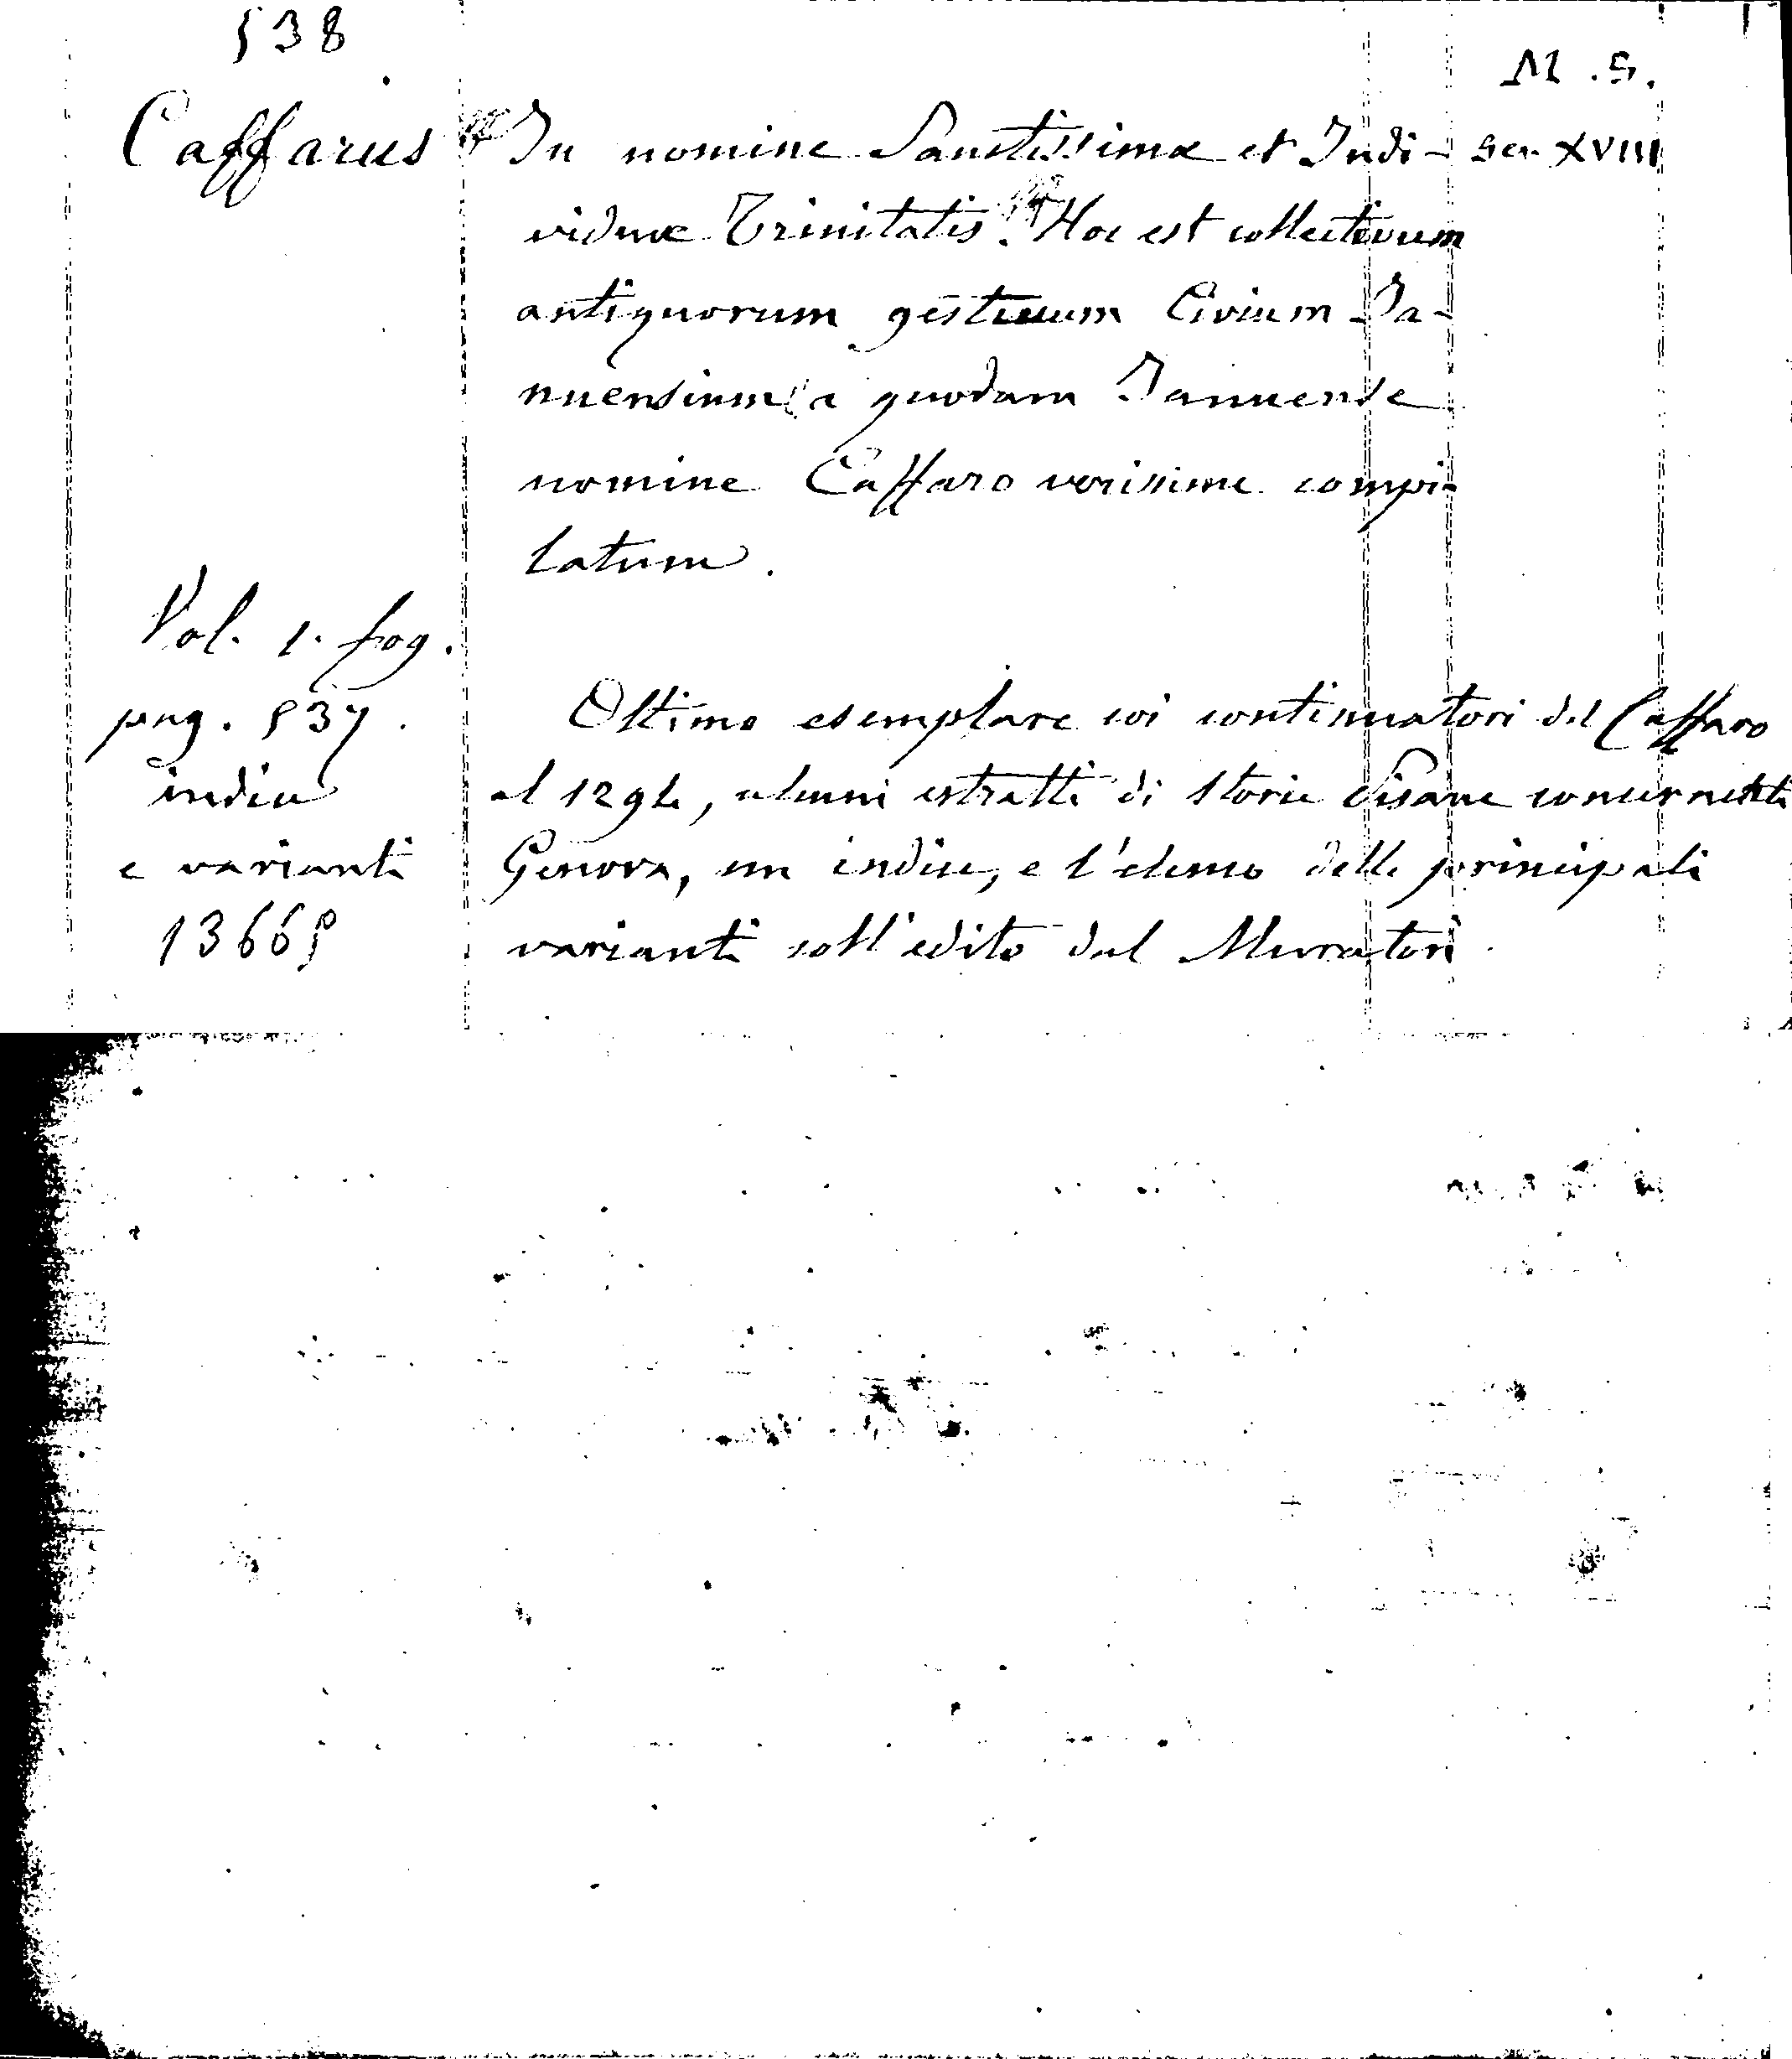 538
M. S.
Caffarus
In nomine Sanctissimæ et Indi-
sec. XVIII
viduæ Trinitatis. Hoc est collectivum
antiquorum gestuum Civium Ja-
nuensium a quodam Januense
nomine Caffaro verissime compi-
latum.
Vol. 1. fog.
pag. 537.
indice
e varianti
13665
Ottimo esemplare coi continuatori del Caffaro
al 1294, alcuni estratti di storie Pisane concernenti
Genova, un indice, e l'elenco delle principali
varianti coll'edito dal Muratori